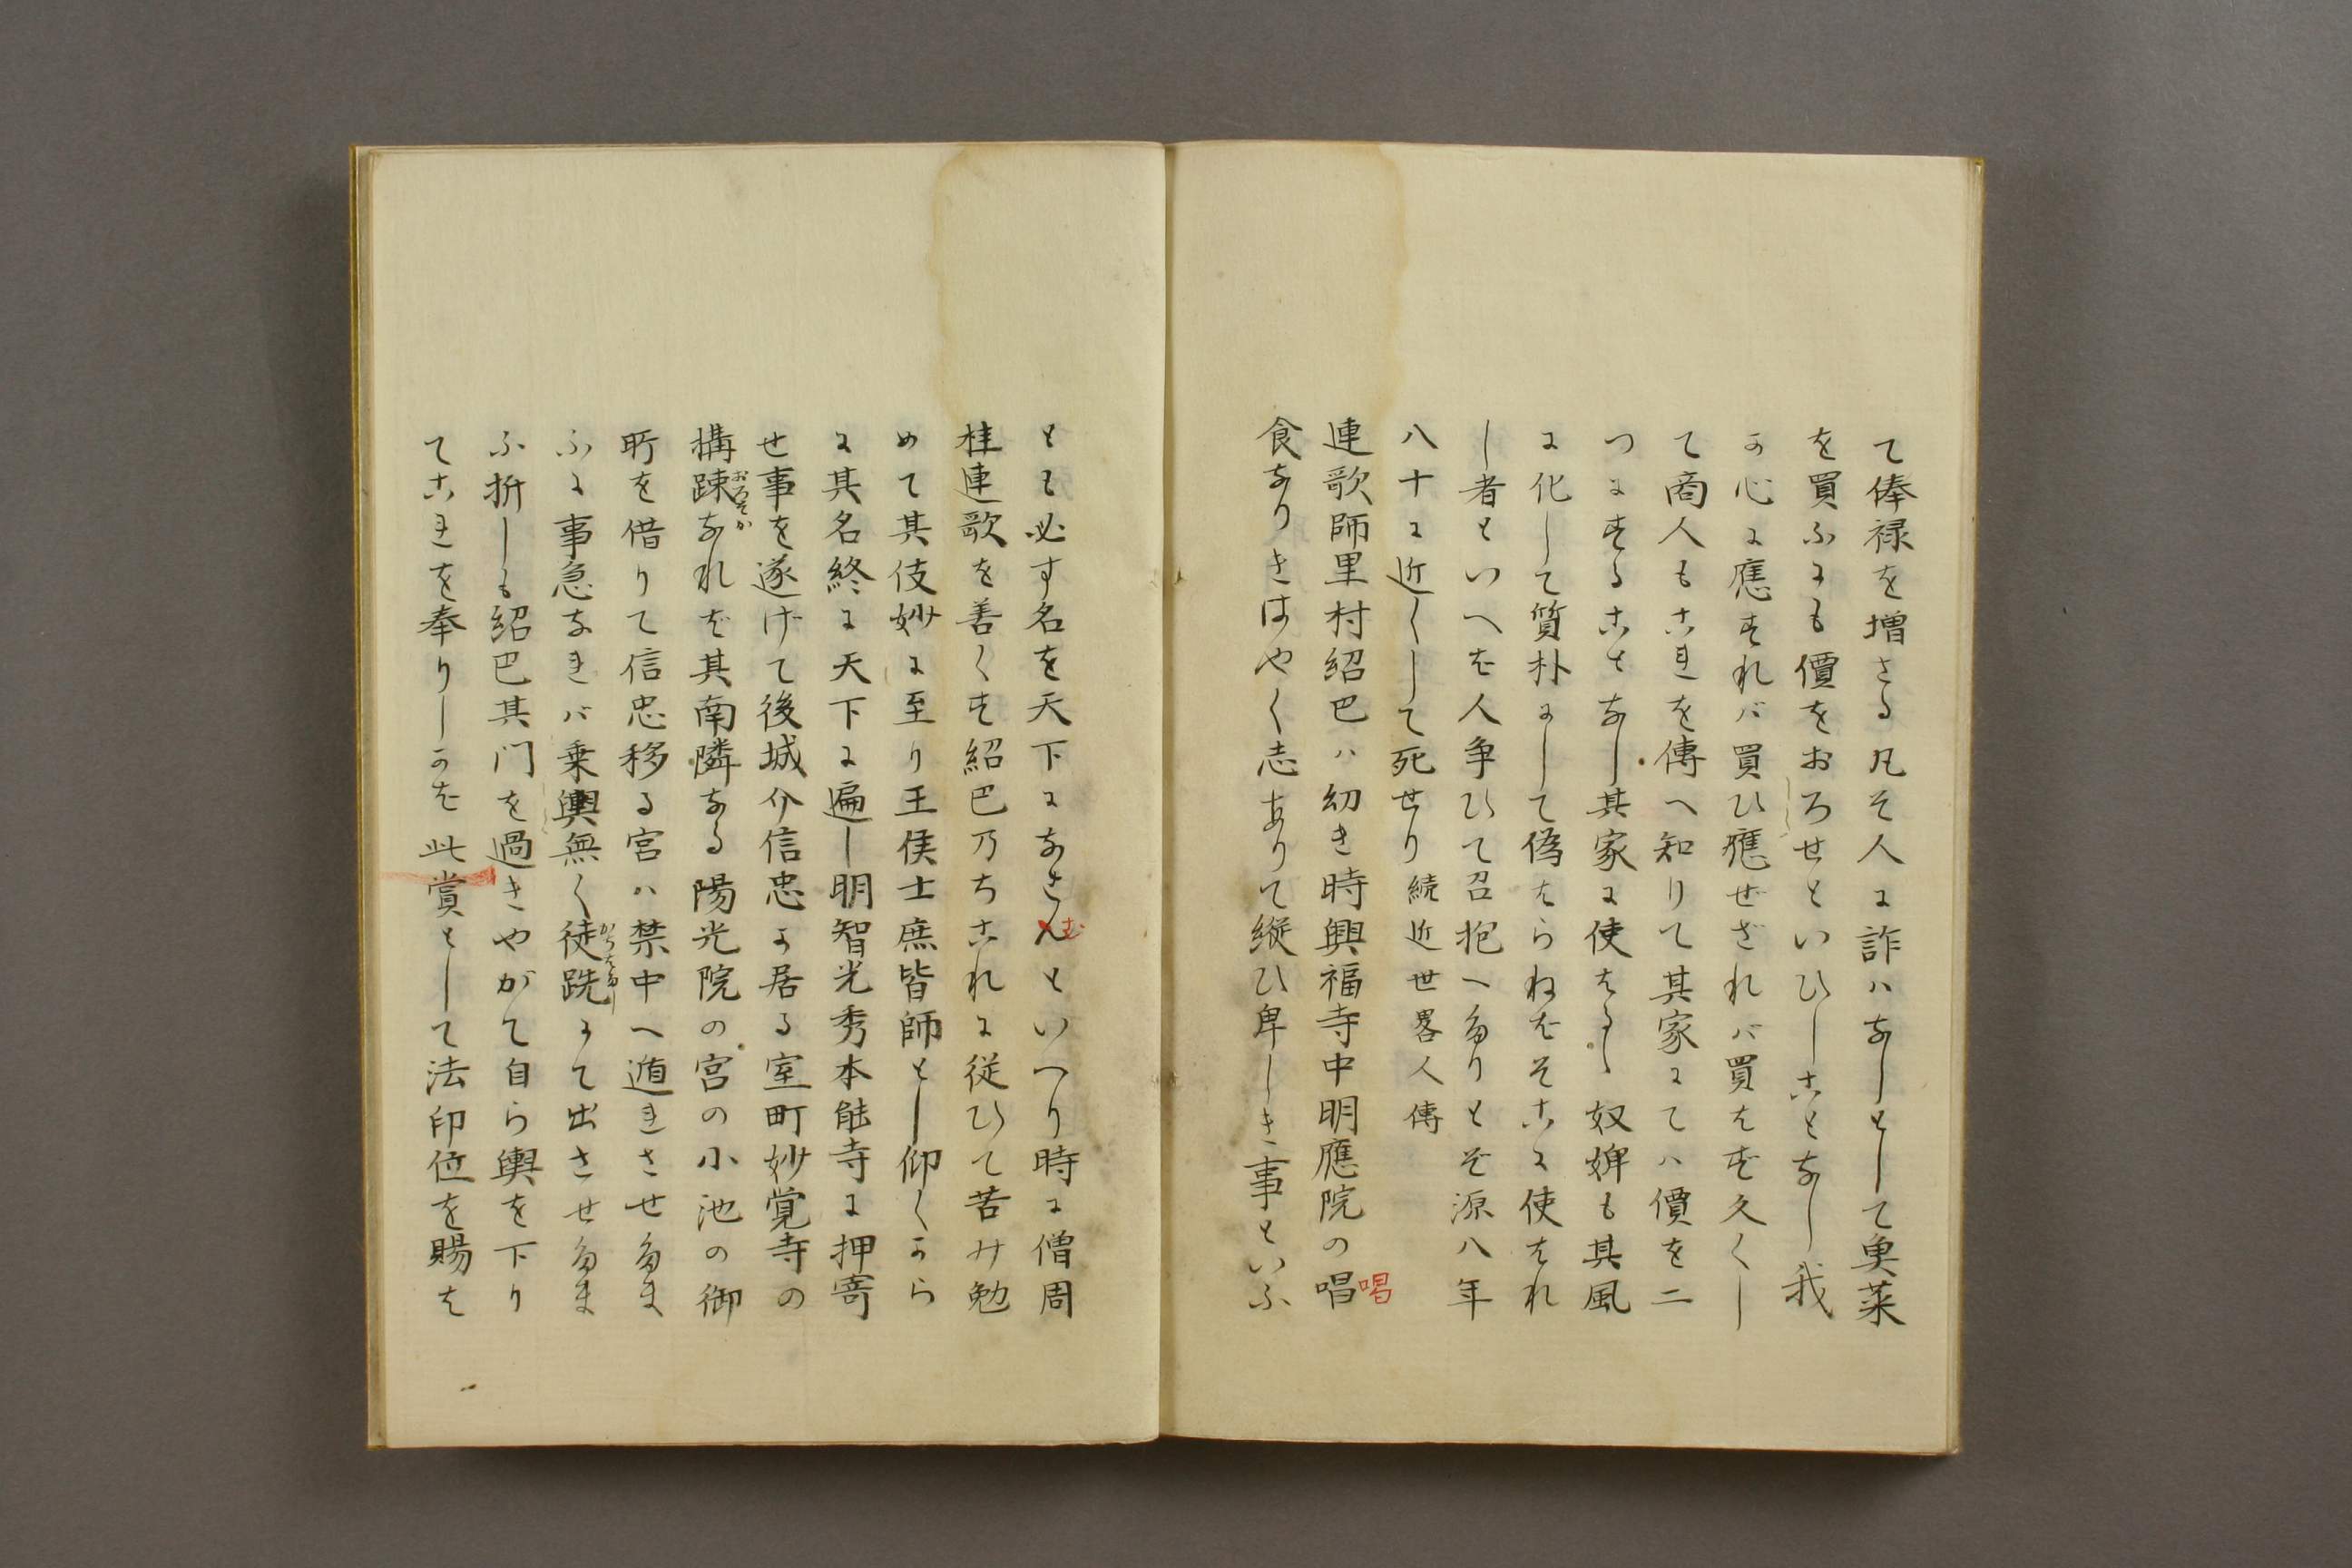 て俸禄を増さる凡そ人に詐ハなしとして魚菜
を買ふにも價をおろせといひしことなし我
か心に應すれバ買ひ應ぜざれバ買はず久くし
て商人もこれを傳へ知りて其家にてハ價を二
つにすることなし其家に使はるゝ奴婢も其風
に化して質朴にして偽はらねばそこに使はれ
し者といへば人争ひて召抱へたりとぞ源八年
八十に近くして死せり 続近世畧人傳
連歌師里村紹巴ハ幼き時興福寺中明應院の唱
喝
食なりきはやく志ありて縦ひ卑しき事といふ
とも必す名を天下になさんといへり時に僧周
む
桂連歌を善くす紹巴乃ちこれに従ひて苦み勉
めて其伎妙に至り王侯士庶皆師とし仰くから
に其名終に天下に遍し明智光秀本能寺に押寄
せ事を遂げて後城介信忠か居る室町妙覚寺の
構踈なれば其南隣なる陽光院の宮の小池の御
おろそか
所を借りて信忠移る宮ハ禁中へ遁れさせたま
ふに事急なれバ乗輿無く徒跣にて出させたま
かちはだし
ふ折しも紹巴其門を過きやがて自ら輿を下り
てこれを奉りしかば此賞として法印位を賜は